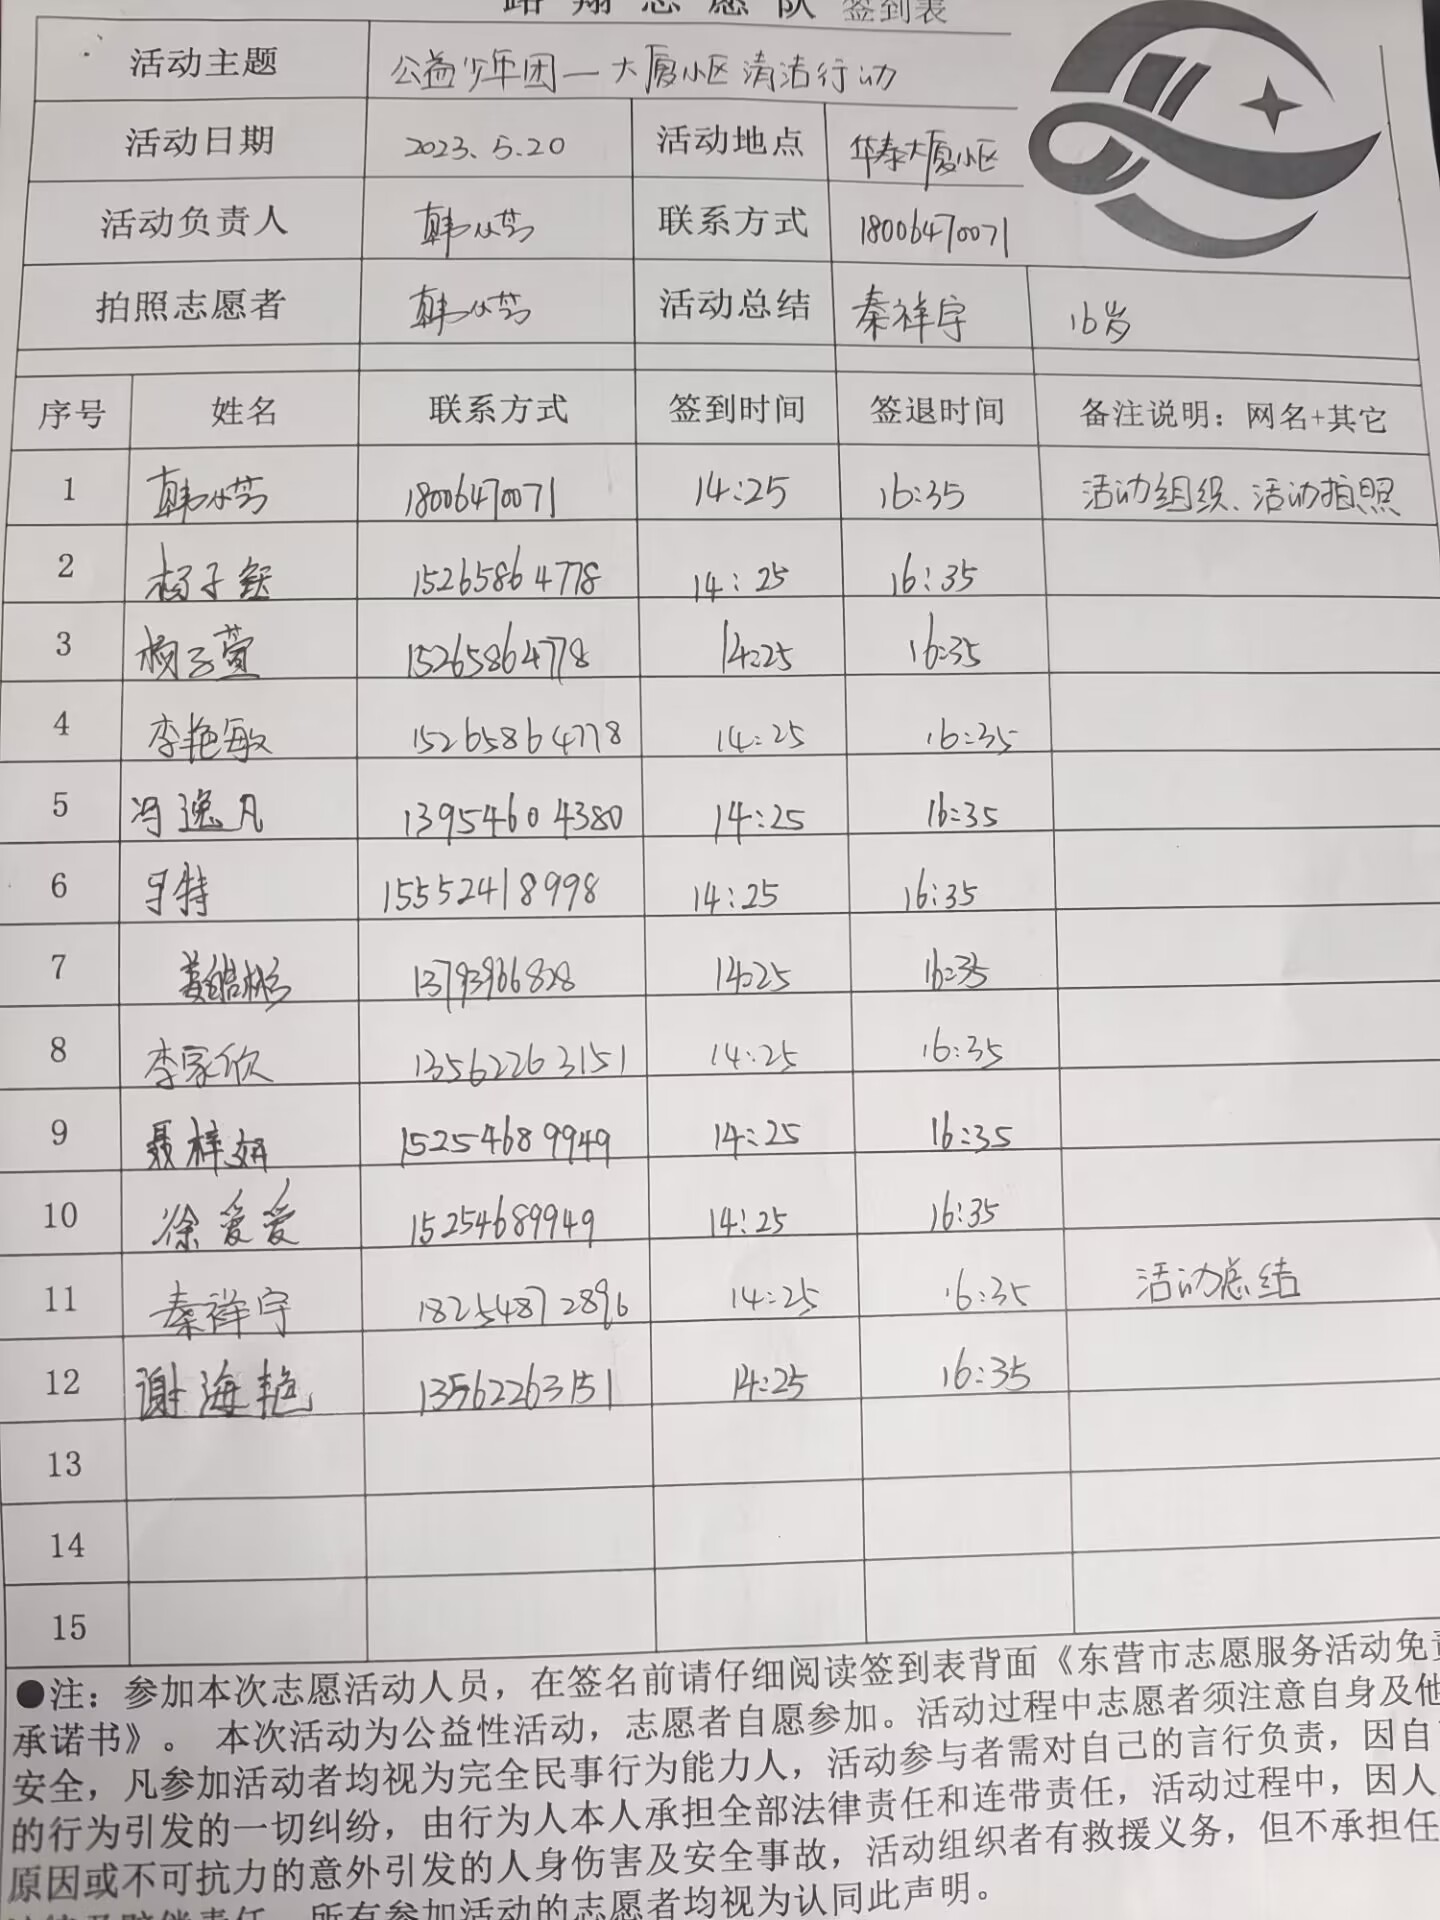 路翔志愿队 签到表
活动主题 公益少年团—大厦小区清洁行动
活动日期 2023.5.20 活动地点 华泰大厦小区
活动负责人 联系方式 18006470071
拍照志愿者 活动总结 秦祥宇 16岁
序号 姓名 联系方式 签到时间 签退时间 备注说明：网名+其它
1 18006470071 14:25 16:35 活动组织、活动拍照
2 杨子钰 15265864778 14:25 16:35
3 杨子萱 15265864778 14:25 16:35
4 李艳敏 15265864778 14:25 16:35
5 冯逸凡 13954604380 14:25 16:35
6 15552418998 14:25 16:35
7 13793966828 14:25 16:35
8 李家欣 13562263151 14:25 16:35
9 聂梓妍 15254689949 14:25 16:35
10 徐爱爱 15254689949 14:25 16:35
11 秦祥宇 18254872896 14:25 16:35 活动总结
12 谢海艳 13562263151 14:25 16:35
13
14
15
●注：参加本次志愿活动人员，在签名前请仔细阅读签到表背面《东营市志愿服务活动免责
承诺书》。 本次活动为公益性活动，志愿者自愿参加。活动过程中志愿者须注意自身及他
安全，凡参加活动者均视为完全民事行为能力人，活动参与者需对自己的言行负责，因自
的行为引发的一切纠纷，由行为人本人承担全部法律责任和连带责任，活动过程中，因人
原因或不可抗力的意外引发的人身伤害及安全事故，活动组织者有救援义务，但不承担任
所有参加活动的志愿者均视为认同此声明。